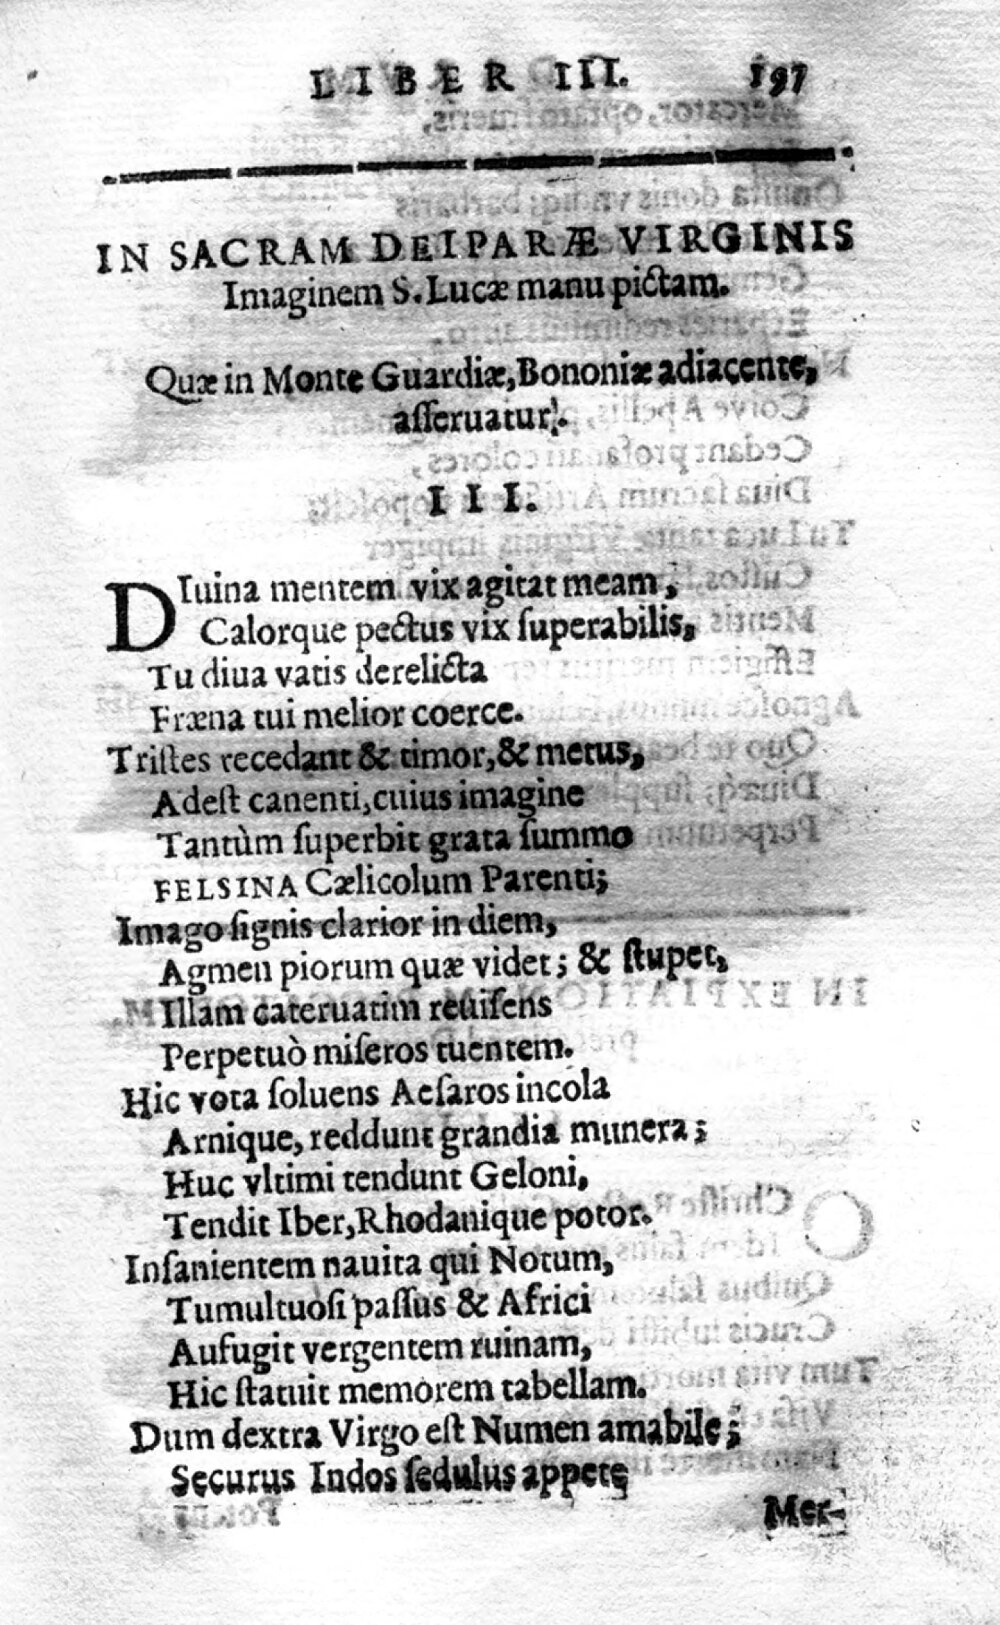 LIBER III. 197
IN SACRAM DEIPARÆ VIRGINIS
Imaginem S. Lucæ manu pictam.
Quæ in Monte Guardiæ, Bononiæ adiacente,
asseruatur.
III.
DIuina mentem vix agitat meam,
Calorque pectus vix superabilis,
Tu diua vatis derelicta
Fræna tui melior coerce.
Tristes recedant & timor, & metus,
Adest canenti, cuius imagine
Tantùm superbit grata summo
FELSINA Cælicolum Parenti;
Imago signis clarior in diem,
Agmen piorum quæ videt; & stupet,
Illam cateruatim reuisens
Perpetuò miseros tuentem.
Hic vota soluens Aesaros incola
Arnique, reddunt grandia munera;
Huc vltimi tendunt Geloni,
Tendit Iber, Rhodanique potor.
Insanientem nauita qui Notum,
Tumultuosi passus & Africi
Aufugit vergentem ruinam,
Hic statuit memorem tabellam.
Dum dextra Virgo est Numen amabile;
Securus Indos sedulus appete
Mer-